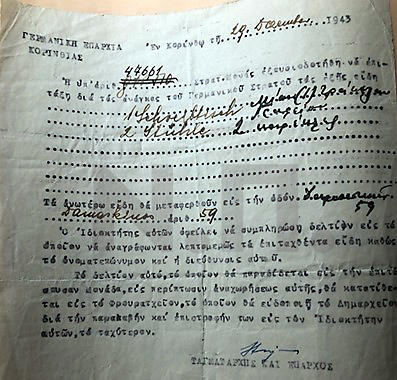 ΓΕΡΜΑΝΙΚΗ ΕΠΑΡΧΙΑ
ΚΟΡΙΝΘΙΑΣ
Ἐν Κορίνθῳ τῇ 29 1943
Ἡ ὑπ'ἀριθ. 44661 Στρατ. Μονάς ἐξουσιοδοτήθη νά ἐπι-
τάξῃ διά τάς ἀνάγκας τοῦ Γερμανικοῦ Στρατοῦ τάς ἑξῆς εἴδη
1
2 Stühle 2
Τά ἀνωτέρω εἴδη θά μεταφερθοῦν εἰς τήν ὁδόν.
Damaskinos ἀριθ. 59 59
Ὁ Ἰδιοκτήτης αὐτῶν ὀφείλει νά συμπληρώσῃ δελτίον εἰς τό
ὁποῖον νά ἀναγράφωνται λεπτομερῶς τά ἐπιταχθέντα εἴδη καθώς
τό ὀνοματεπώνυμον καί ἡ διεύθυνσις αὐτοῦ.
Τό δελτίον αὐτό, τό ὁποῖον θά παραδίδεται εἰς τήν ἐπιτά
σσυσαν Μονάδα, εἰς περίπτωσιν ἀναχωρήσεως αὐτῆς, θά κατατίθε-
ται εἰς τό Φρουραρχεῖον, τό ὁποῖον θά εἰδοποιῇ τό Δημαρχεῖον
διά τήν παραλαβήν καί ἐπιστροφήν των εἰς τόν Ἰδιοκτήτην
αὐτῶν, τό ταχύτερον.
ΤΑΓΜΑΤΑΡΧΗΣ ΚΑΙ ΕΠΑΡΧΟΣ